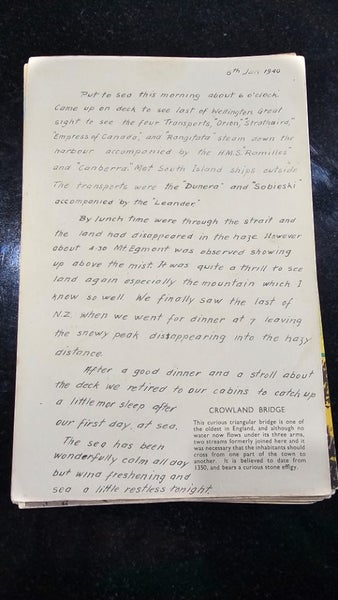 6th Jan 1940
Put to sea this morning about 6 o'clock.
Came up on deck to see last of Wellington. Great
sight to see the four Transports, "Orion," "Strathaird,"
"Empress of Canada," and "Rangitata" steam down the
harbour accompanied by the H.M.S. "Ramilles"
and "Canberra." Met South Island ships outside.
The transports were the "Dunera" and "Sobieski"
accompanied by the "Leander."
By lunch time were through the strait and
the land had disappeared in the haze. However
about 4-30 Mt Egmont was observed showing
up above the mist. It was quite a thrill to see
land again especially the mountain which I
know so well. We finally saw the last of
N.Z. when we went for dinner at 7 leaving
the snowy peak dissappearing into the hazy
distance.
After a good dinner and a stroll about
the deck we retired to our cabins to catch up
a little mor sleep after
our first day at sea.
The sea has been
wonderfully calm all day
but wind freshening and
sea a little restless tonight.
CROWLAND BRIDGE
This curious triangular bridge is one of
the oldest in England, and although no
water now flows under its three arms,
two streams formerly joined here and it
was necessary that the inhabitants should
cross from one part of the town to
another. It is believed to date from
1350, and bears a curious stone effigy.